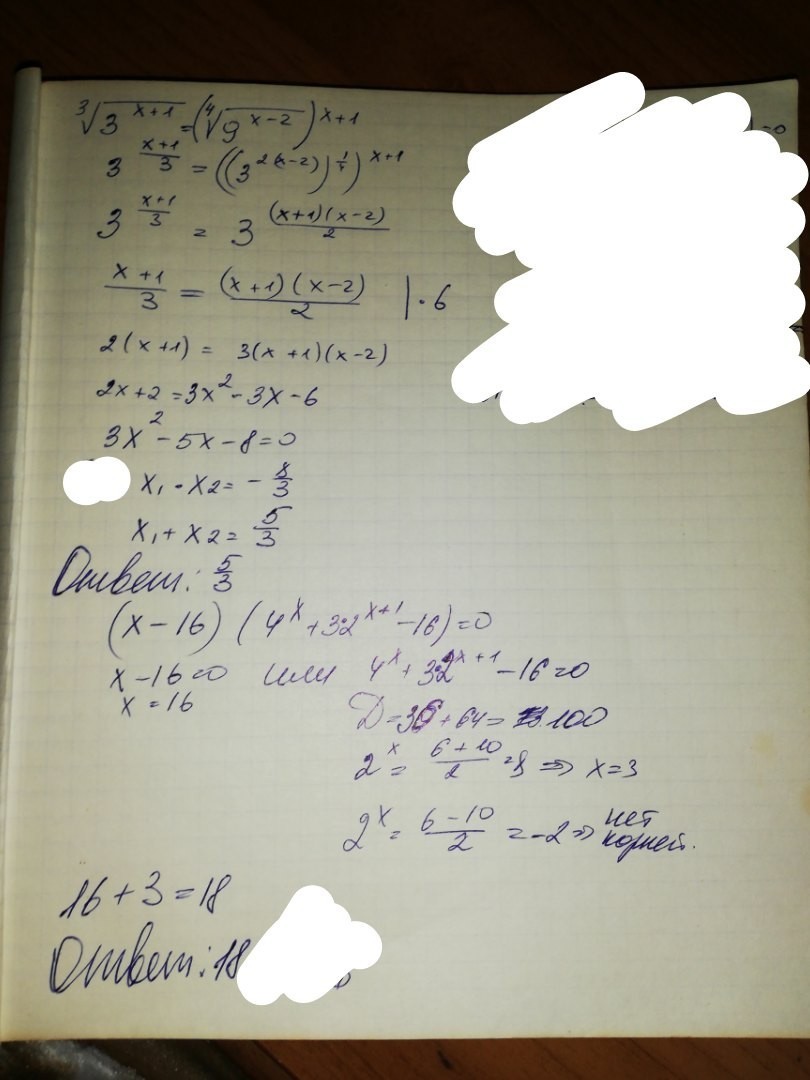 ∛(3^(x+1)) = (∜(9^(x-2)))^(x+1)
3^((x+1)/3) = ((3^(2(x-2)))^(1/4))^(x+1)
3^((x+1)/3) = 3^((x+1)(x-2)/2)
(x+1)/3 = (x+1)(x-2)/2 | · 6
2(x+1) = 3(x+1)(x-2)
2x+2=3x²-3x-6
3x²-5x-8=0
x₁ · x₂ = -8/3
x₁ + x₂ = 5/3
Ответ: 5/3
(x-16)(4^x+32^(x+1)-16)=0
x-16=0 или 4^x+32^(x+1)-16=0
x=16 D=36+64=100
2^x = (6+10)/2 =8 => x=3
2^x = (6-10)/2 = -2 => нет корней.
16+3=18
Ответ: 18